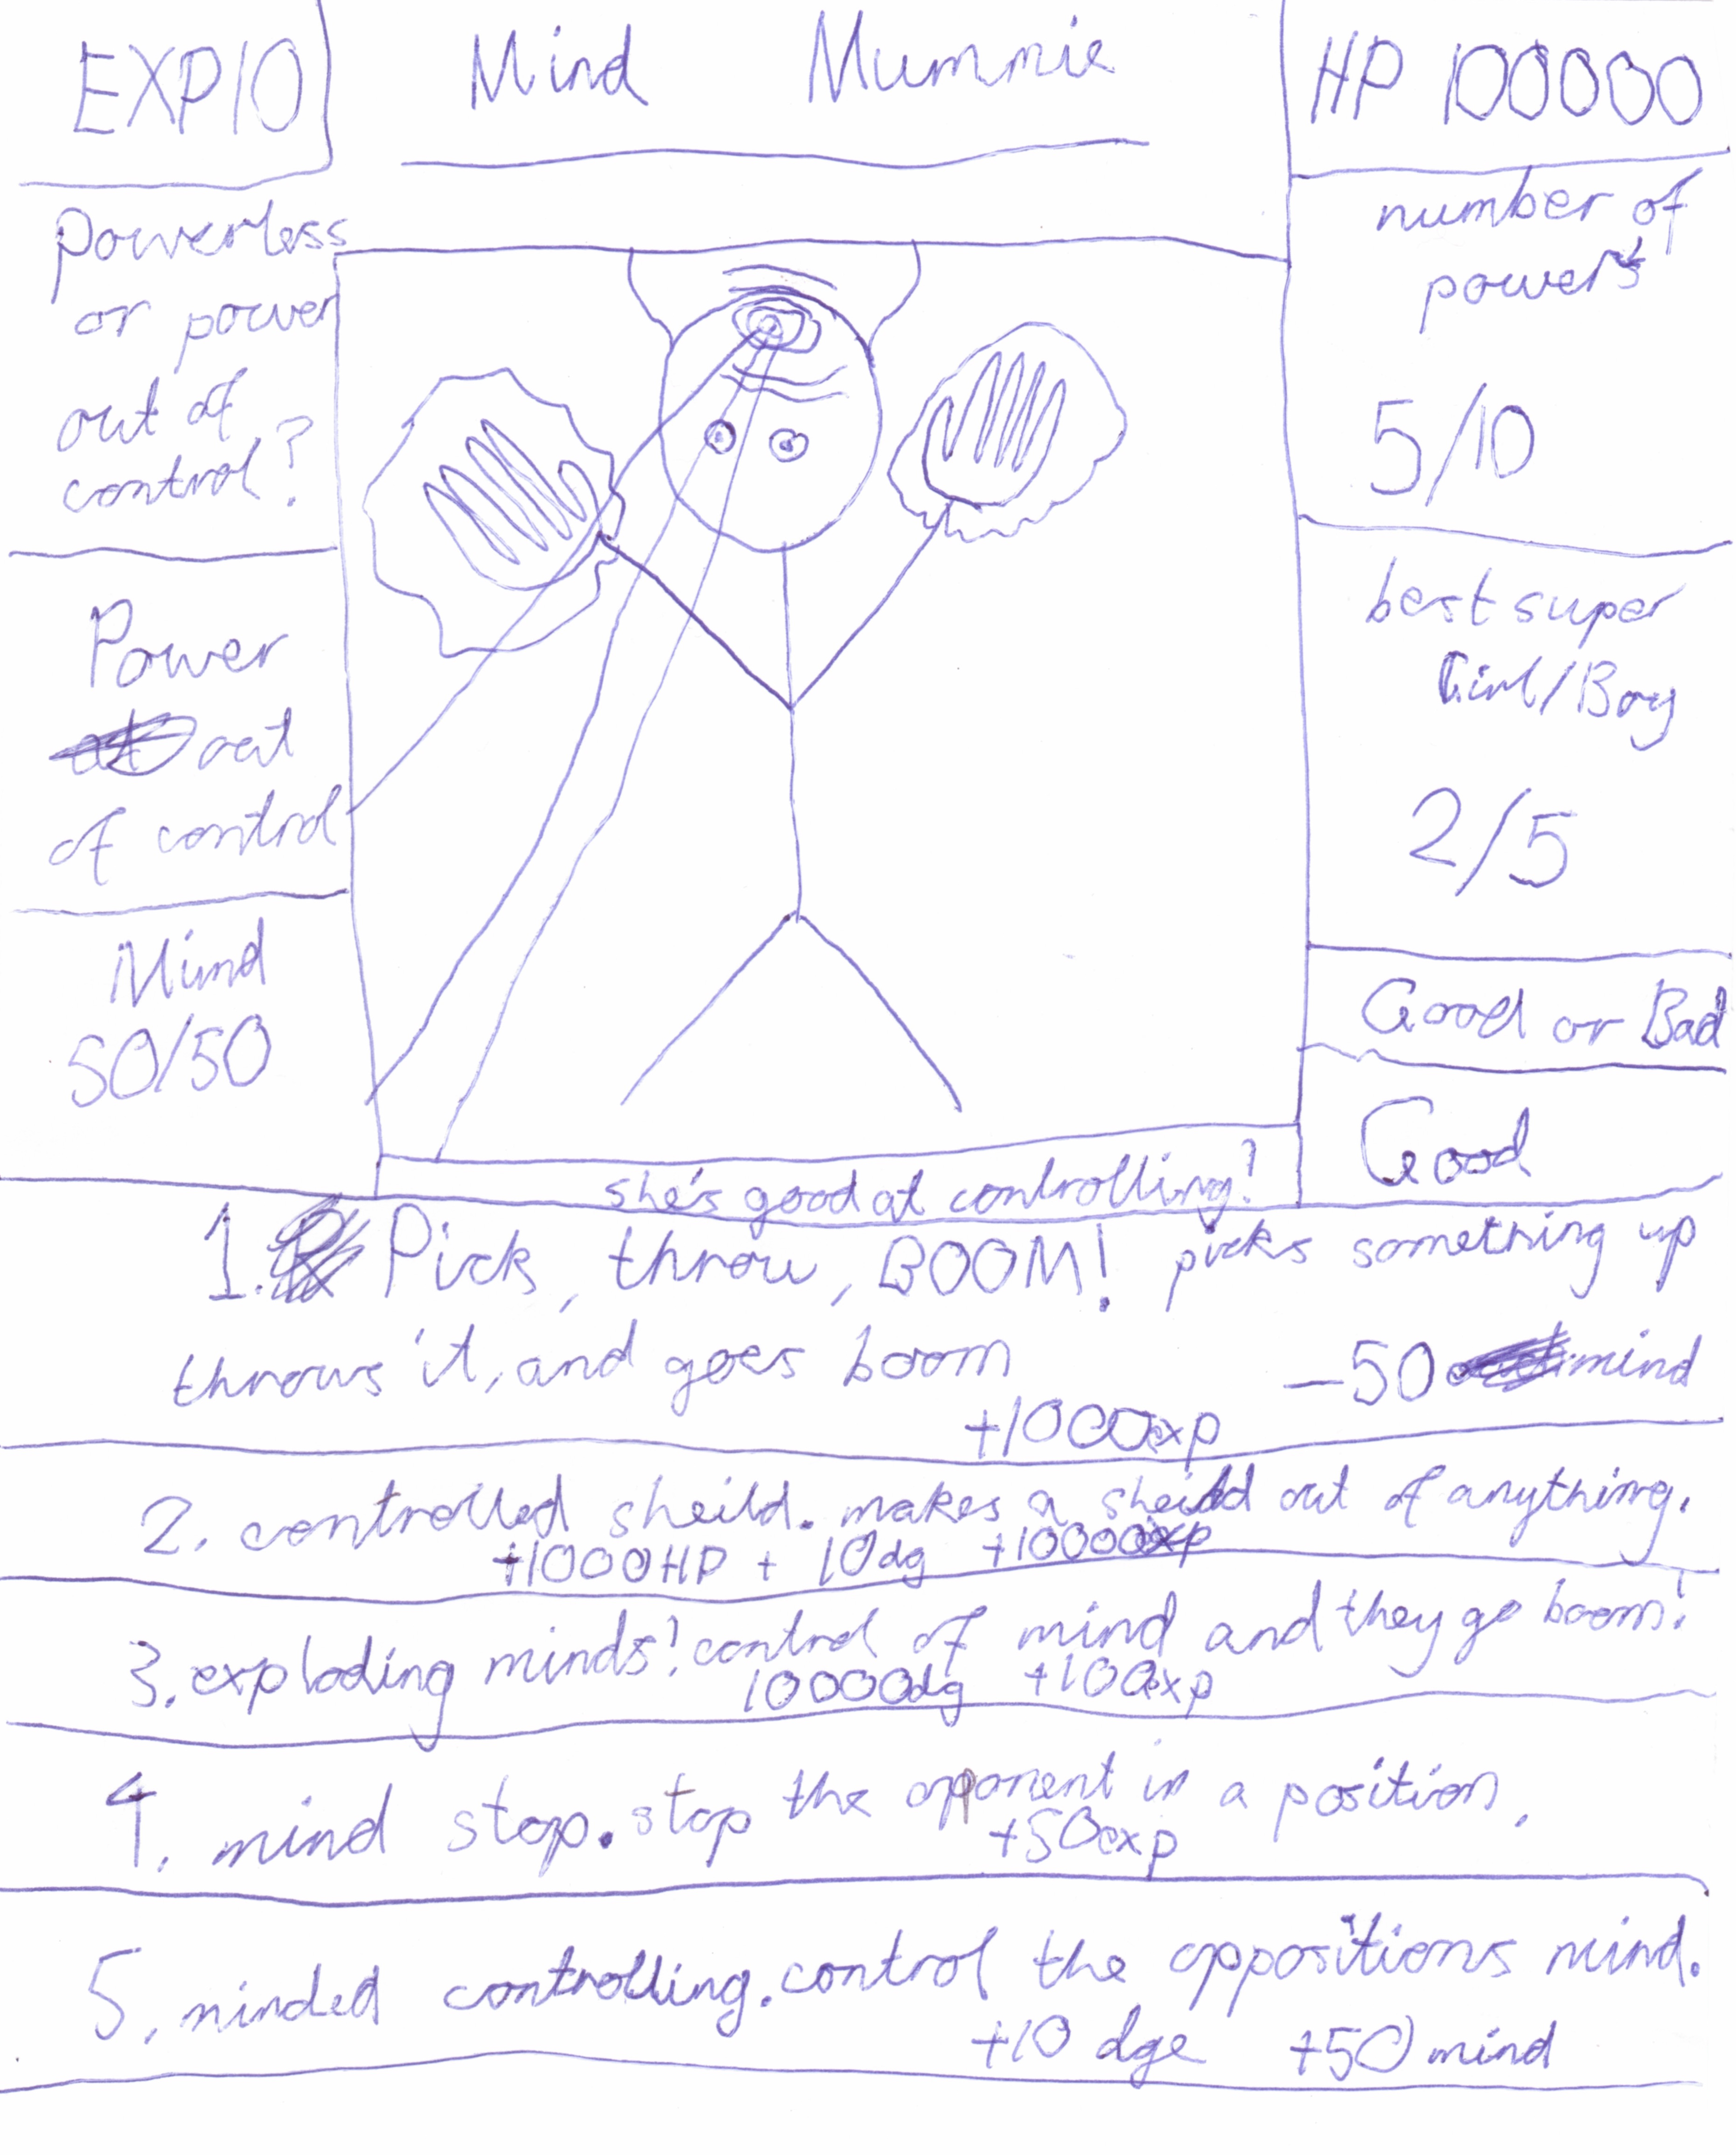 EXP10
Mind Mummie
HP 100000
powerless
or power
out of
control?
Power
out
of control
Mind
50/50
number of
powers
5/10
best super
Girl/Boy
2/5
Good or Bad
Good
she's good at controlling!
1. Pick, throw, BOOM! picks something up
throws it, and goes boom -50 mind
+1000exp
2. controlled sheild. makes a sheild out of anything.
+1000HP + 10dg +10000xp
3. exploding minds! control of mind and they go boom!
10000dg +100xp
4. mind stop. stop the opponent in a position.
+50exp
5. minded controlling. control the oppositions mind.
+10 dge +50 mind